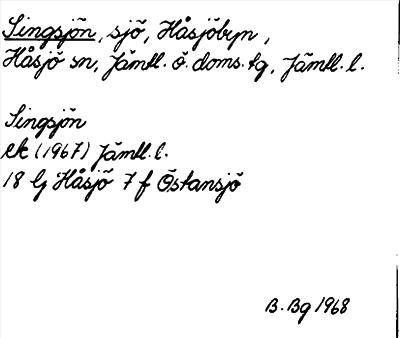 Singsjön, sjö, Håsjöbyn,
Håsjö sn, Jämtl. ö. doms. tg, Jämtl. l.
Singsjön
ek (1967) Jämtl. l.
18 G Håsjö 7 f Östansjö
B. Bg 1968